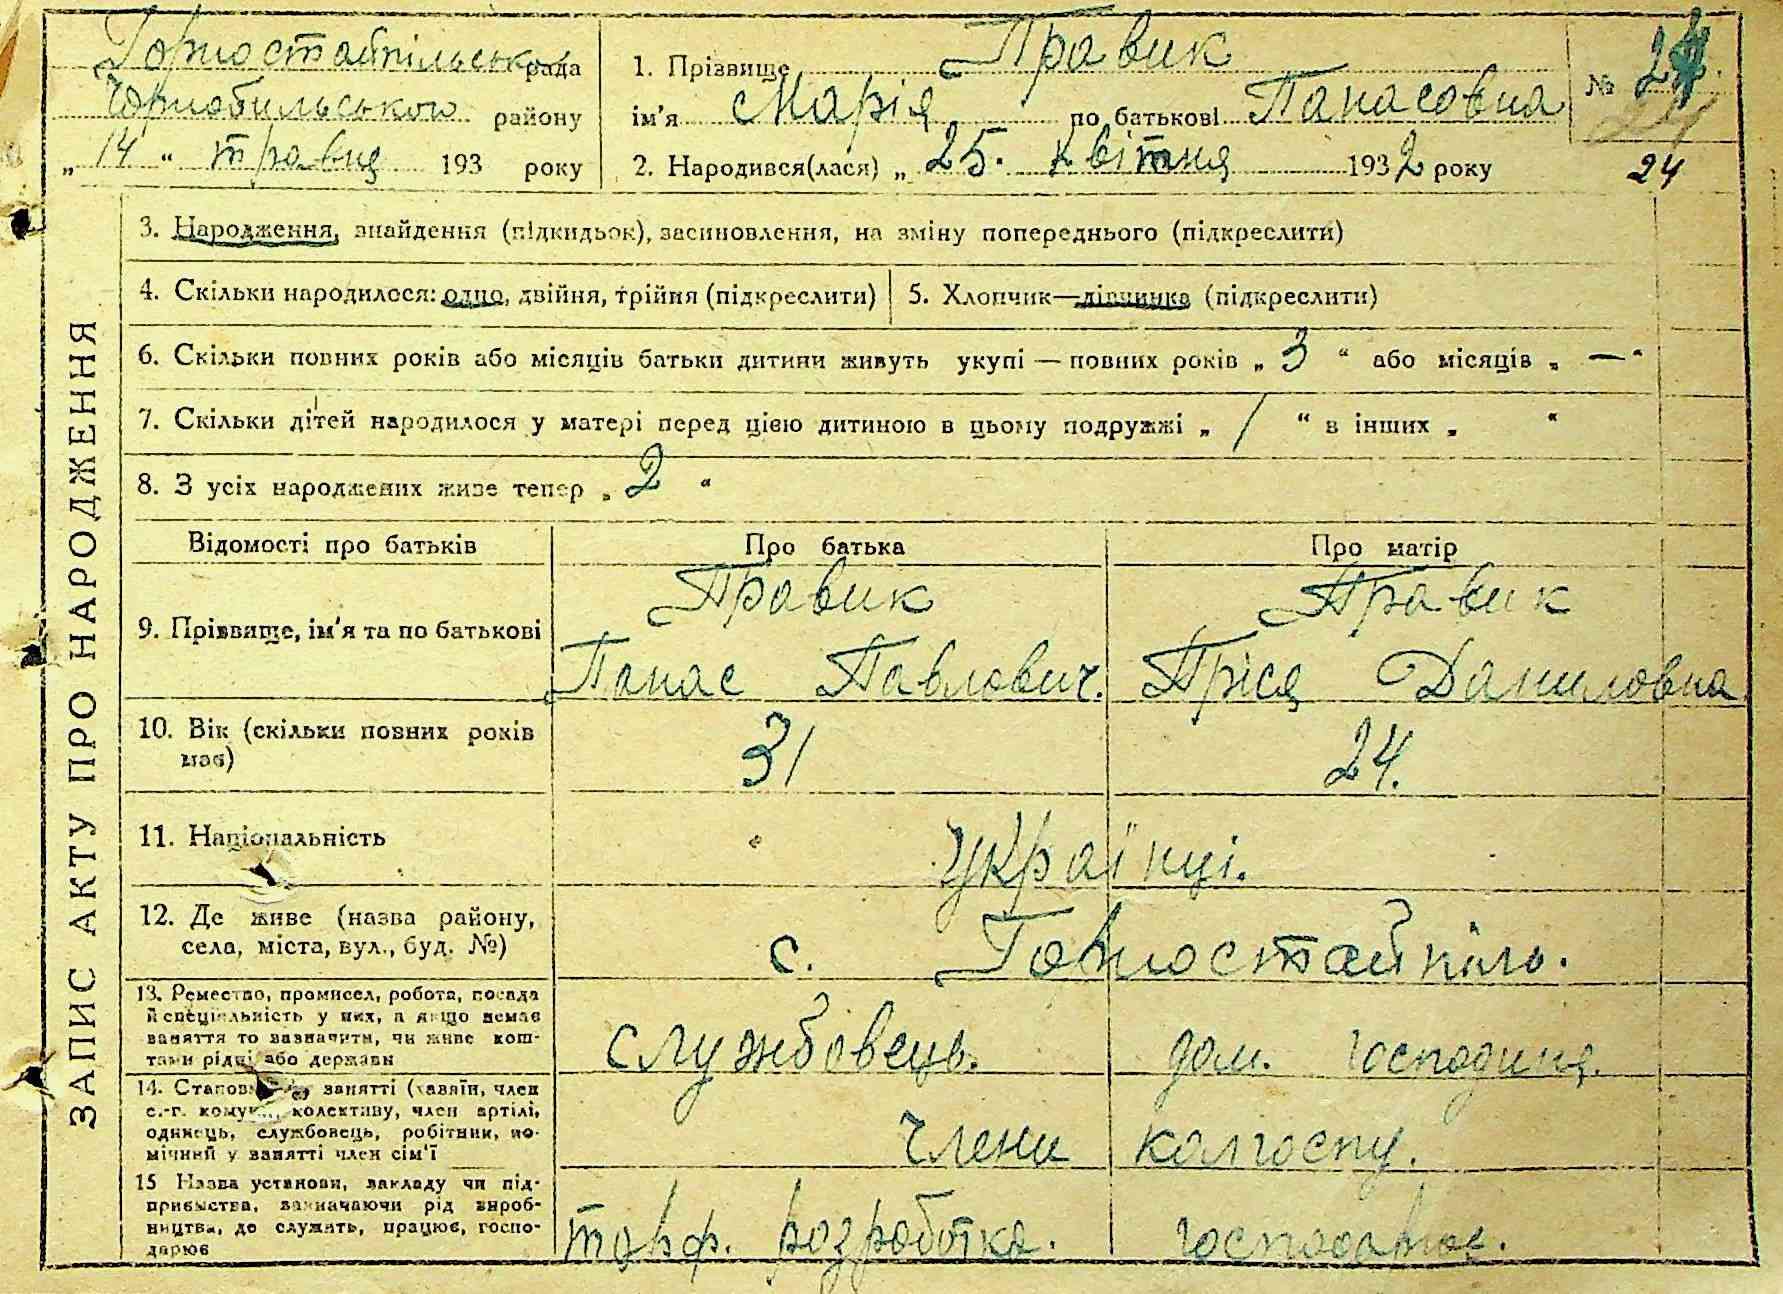 Горностайпільська рада
Чорнобильського району
„ 14 “ травня 193 року
1. Прізвище Правик
ім'я Марія по батькові Панасовна
2. Народився(лася) „ 25. квітня 1932 року
№ 24
24
24
ЗАПИС АКТУ ПРО НАРОДЖЕННЯ
3. Народження, знайдення (підкидьок), засиновлення, на зміну попереднього (підкреслити)
4. Скільки народилося: одно, двійня, трійня (підкреслити)
5. Хлопчик—дівчинка (підкреслити)
6. Скільки повних років або місяців батьки дитини живуть укупі — повних років „ 3 “ або місяців „ — “
7. Скільки дітей народилося у матері перед цією дитиною в цьому подружжі „ 1 “ в інших „ “
8. З усіх народжених живе тепер „ 2 “
Відомості про батьків Про батька Про матір
9. Прізвище, ім'я та по батькові
Правик Правик
Панас Павлович. Пріся Даниловна
10. Вік (скільки повних років
має)
31 24.
11. Національність
Українці.
12. Де живе (назва району,
села, міста, вул., буд. №)
с. Горностайпіль.
13. Ремество, промисел, робота, посада
й спеціяльність у них, а якщо немає
заняття то зазначити, чи живе кош-
тами рідні або держави
службовець. дом. господиня.
14. Становище в занятті (хазяїн, член
с.-г. комуни, колективу, член артілі,
одинець, службовець, робітник, по-
мічний у занятті член сім'ї
члени колгоспу.
15 Назва установи, закладу чи під-
приємства, зазначаючи рід вироб-
ництва, де служить, працює, госпо-
дарює
торф. розработка. господарює.